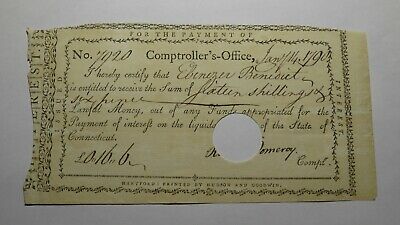 FOR THE PAYMENT OF
INTEREST
No. 7990 Comptroller's-Office, Jany 14, 1790
I hereby certify that Ebenezer Benedict
is entitled to receive the Sum of sixteen shillings &
six pence
Lawful Money, out of any Funds appropriated for the
Payment of interest on the liquida of the State of
Connecticut.
£0..16..6 Pomeroy Compt.
HARTFORD: PRINTED BY HUDSON AND GOODWIN.